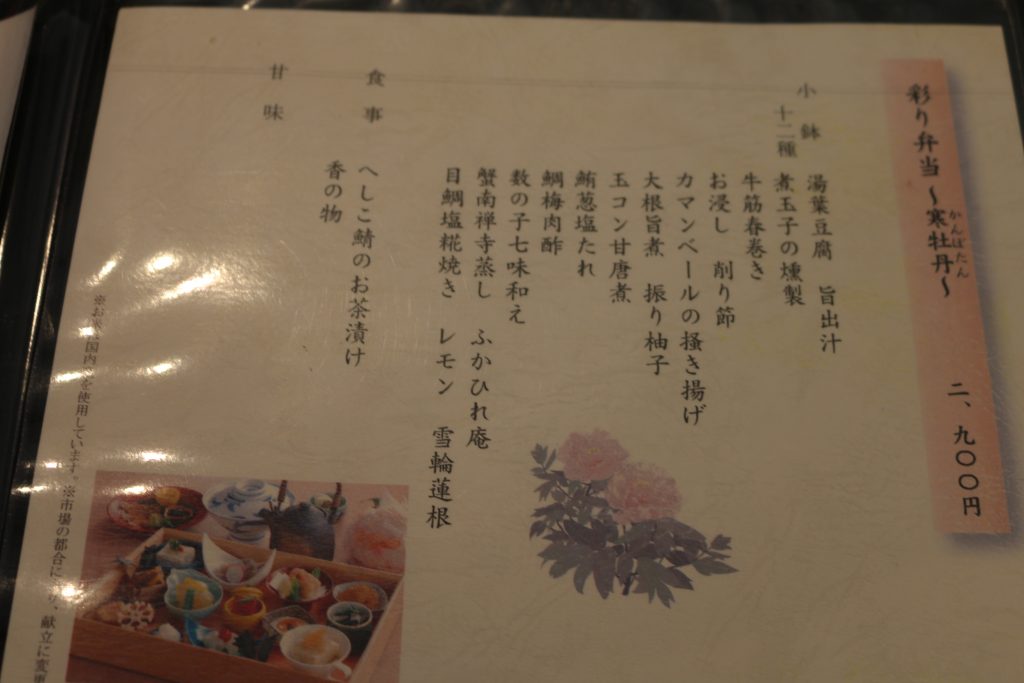 彩り弁当 ～寒牡丹～ 二、九〇〇円
かんぼたん
小鉢
十二種
湯葉豆腐 旨出汁
煮玉子の燻製
牛筋春巻き
お浸し 削り節
カマンベールの掻き揚げ
大根旨煮 振り柚子
玉コン甘唐煮
鮪葱塩たれ
鯛梅肉酢
数の子七味和え
蟹南禅寺蒸し ふかひれ庵
目鯛塩糀焼き レモン 雪輪蓮根
食事
へしこ鯖のお茶漬け
香の物
甘味
※お 国内 を使用しています。※市場の都合に 、献立に変